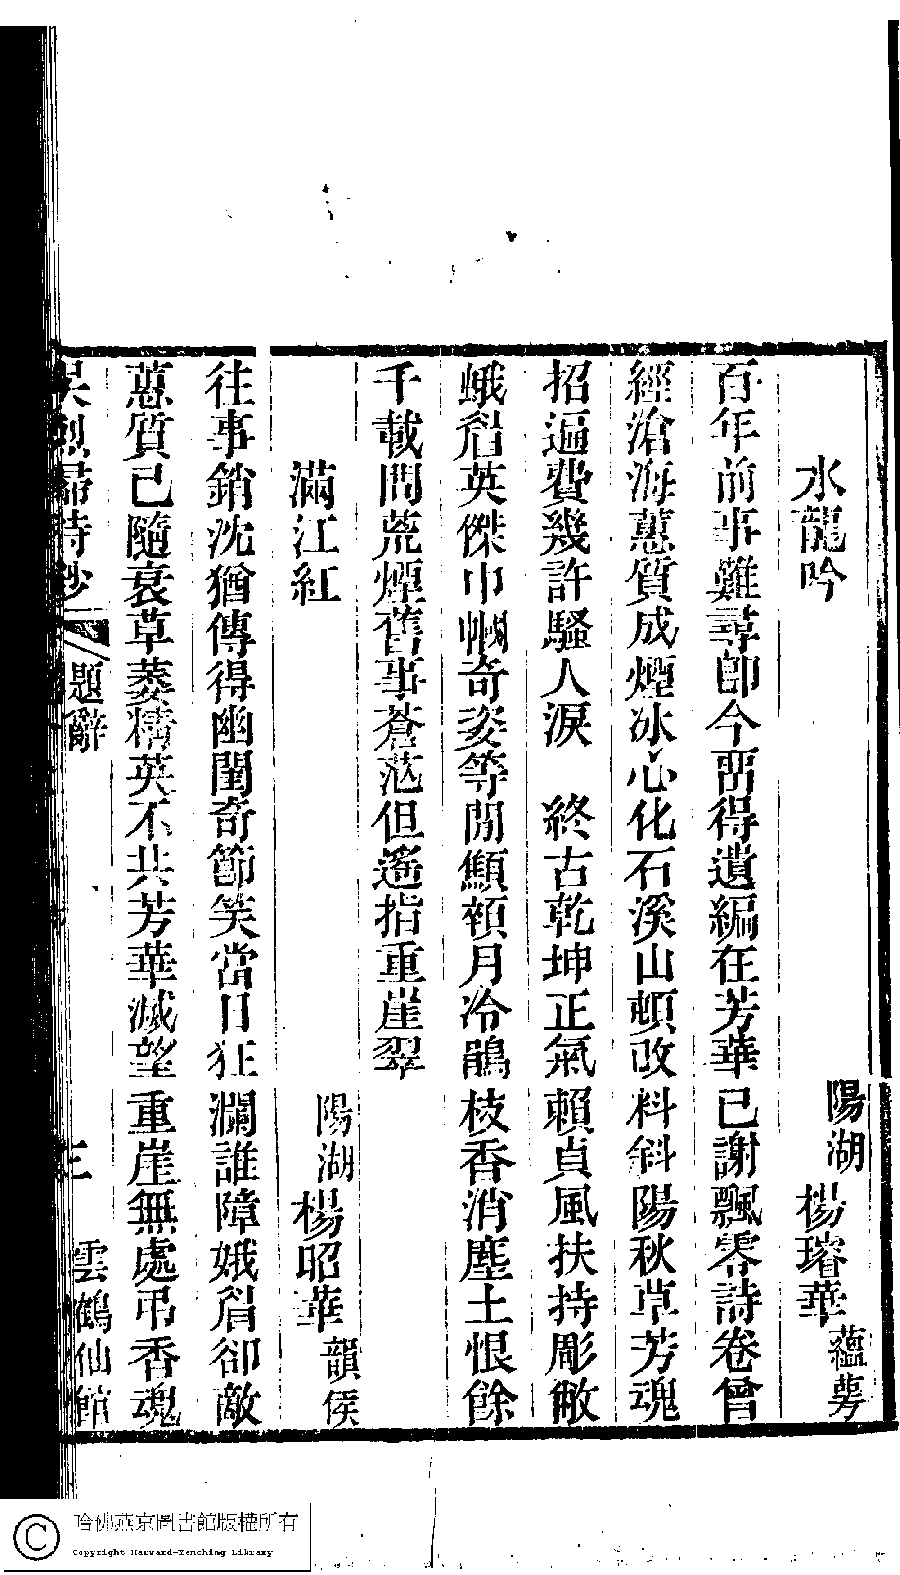 水龍吟
陽湖 楊瑃華 蘊萼
百年前事難尋卽今畱得遺編在芳華已謝飄零詩卷曾
經滄海蕙質成煙冰心化石溪山頓改料斜陽秋草芳魂
招遍費幾許騷人淚 終古乾坤正氣賴貞風扶持彫敝
蛾眉英傑巾幗奇姿等閒顦顇月冷鵑枝香消塵土恨餘
千載問荒煙舊事蒼茫但遙指重崖翠
滿江紅
陽湖 楊昭華 韻侯
往事銷沈猶傳得幽閨奇節笑當日狂瀾誰障娥眉卻敵
蕙質已隨衰草萎精英不共芳華滅望重崖無處弔香魂
吳烈婦詩鈔 題辭 三 雲鶴仙館
哈佛燕京圖書館版權所有
Copyright Harvard-Yenching Library